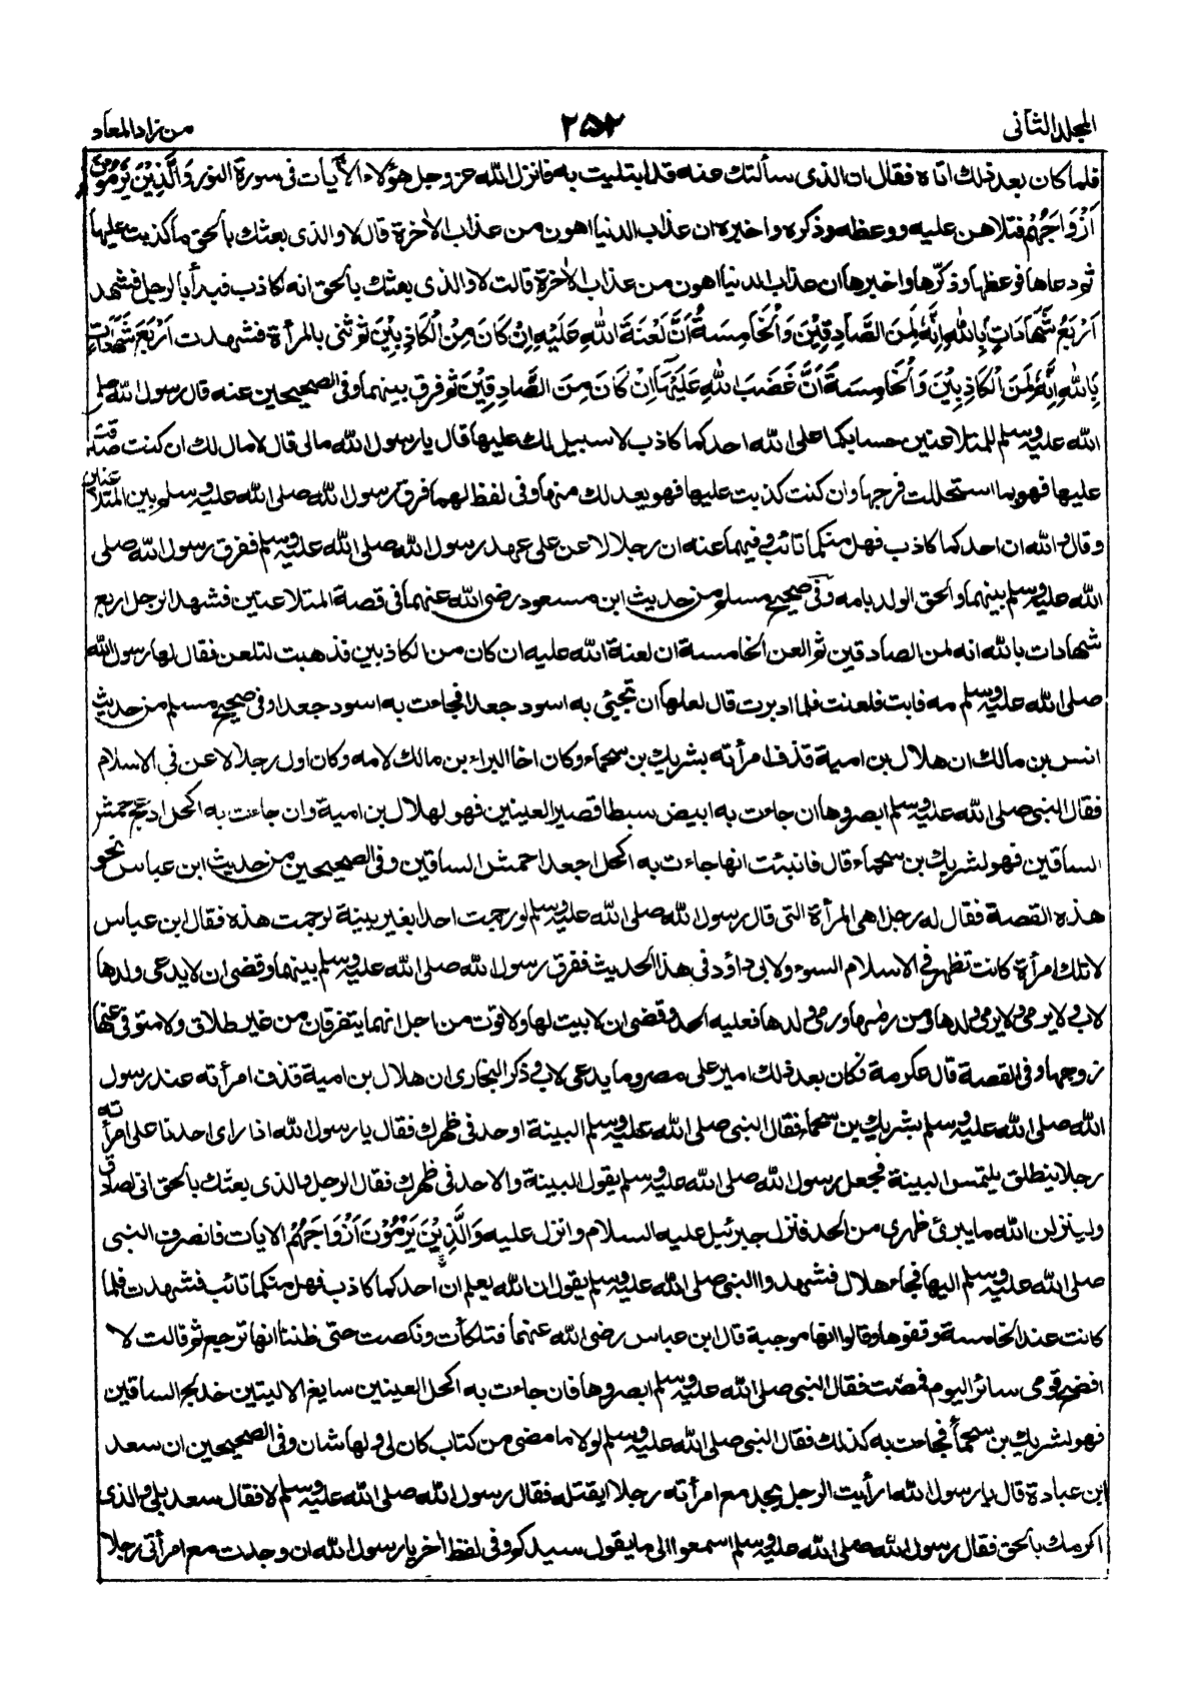 المجلد الثانى
٢٥٢
من زاد المعاد
فلما كان بعد ذلك اتاه فقال ان الذى سألتك عنه قد ابتليت به فانزل الله عز وجل هؤلاء الآيات فى سورة النور وَالَّذِيْنَ يَرْمُوْنَ
اَزْوَاجَهُمْ فتلاهن عليه ووعظه وذكره واخبره ان عذاب الدنيا اهون من عذاب الآخرة قال لا والذى بعثك بالحق ما كذبت عليها
ثم دعاها فوعظها وذكّرها واخبرها ان عذاب الدنيا اهون من عذاب الآخرة قالت لا والذى بعثك بالحق انه لكاذب فبدأ بالرجل فشهد
اَرْبَعُ شَهَادَاتٍ بِاللهِ اِنَّهُ لَمِنَ الصَّادِقِيْنَ وَالْخَامِسَةُ اَنَّ لَعْنَةَ اللهِ عَلَيْهِ اِنْ كَانَ مِنَ الْكَاذِبِيْنَ ثم ثنى بالمرأة فشهدت اَرْبَعَ شَهَادَاتٍ
بِاللهِ اِنَّهُ لَمِنَ الْكَاذِبِيْنَ وَالْخَامِسَةَ اَنَّ غَضَبَ اللهِ عَلَيْهَا اِنْ كَانَ مِنَ الصَّادِقِيْنَ ثم فرق بينهما وفى الصحيحين عنه قال رسول الله صلى
الله عليه وسلم للمتلاعنين حسابكما على الله احدكما كاذب لا سبيل لك عليها قال يا رسول الله مالى قال لا مال لك ان كنت صدقت
عليها فهو بما استحللت فرجها وان كنت كذبت عليها فهو بعد لك منها وفى لفظ لهما فرق رسول الله صلى الله عليه وسلم بين المتلاعنين
وقال والله ان احدكما كاذب فهل منكما تائب وفيهما عنه ان رجلا لاعن على عهد رسول الله صلى الله عليه وسلم ففرق رسول الله صلى
الله عليه وسلم بينهما والحق الولد بامه وفى صحيح مسلم من حديث ابن مسعود رضى الله عنهما فى قصة المتلاعنين فشهد الرجل اربع
شهادات بالله انه لمن الصادقين ثم العن الخامسة ان لعنة الله عليه ان كان من الكاذبين فذهبت لتلعن فقال لها رسول الله
صلى الله عليه وسلم مه فابت فلعنت فلما ادبرت قال لعلها ان تجئى به اسود جعدا فجاءت به اسود جعدا وفى صحيح مسلم من حديث
انس بن مالك ان هلال بن امية قذف امرأته بشريك بن سحماء وكان اخا البراء بن مالك لامه وكان اول رجل لاعن فى الاسلام
فقال النبى صلى الله عليه وسلم ابصروها ان جاءت به ابيض سبطا قصير العينين فهو لهلال بن امية وان جاءت به اكحل ادعج حمش
الساقين فهو لشريك بن سحماء قال فانبئت انها جاءت به اكحل جعدا حمش الساقين وفى الصحيحين من حديث ابن عباس نحو
هذه القصة فقال له رجل اهى المرأة التى قال رسول الله صلى الله عليه وسلم لو رجمت احدا بغير بينة لرجمت هذه فقال ابن عباس
لا تلك امرأة كانت تظهر فى الاسلام السوء ولابى داؤد فى هذا الحديث ففرق رسول الله صلى الله عليه وسلم بينهما وقضى ان لا يدعى ولدها
لاب ولا يرمى ولا يرمى ولدها ومن رماها او رمى ولدها فعليه الحد وقضى ان لا بيت لها ولا قوت من اجل انهما يتفرقان من غير طلاق ولا متوفى عنها
زوجها وفى القصة قال عكرمة فكان بعد ذلك اميرا على مصر وما يدعى لاب وذكر البخارى ان هلال بن امية قذف امرأته عند رسول
الله صلى الله عليه وسلم بشريك بن سحماء فقال النبى صلى الله عليه وسلم البينة او حد فى ظهرك فقال يا رسول الله اذا راى احدنا على امرأته
رجلا ينطلق يلتمس البينة فجعل رسول الله صلى الله عليه وسلم يقول البينة والا حد فى ظهرك فقال الرجل والذى بعثك بالحق انى لصادق
ولينزلن الله ما يبرئ ظهرى من الحد فنزل جبرئيل عليه السلام وانزل عليه وَالَّذِيْنَ يَرْمُوْنَ اَزْوَاجَهُمْ الايات فانصرف النبى
صلى الله عليه وسلم اليها فجاء هلال فشهد والنبى صلى الله عليه وسلم يقول ان الله يعلم ان احدكما كاذب فهل منكما تائب فشهدت فلما
كانت عند الخامسة وقفوها وقالوا انها موجبة قال ابن عباس رضى الله عنهما فتلكأت ونكصت حتى ظننا انها ترجع ثم قالت لا
افضح قومى سائر اليوم فمضت فقال النبى صلى الله عليه وسلم ابصروها فان جاءت به اكحل العينين سابغ الاليتين خدلج الساقين
فهو لشريك بن سحماء فجاءت به كذلك فقال النبى صلى الله عليه وسلم لولا ما مضى من كتاب كان لى ولها شان وفى الصحيحين ان سعد
ابن عبادة قال يا رسول الله ارأيت الرجل يجد مع امرأته رجلا ايقتله فقال رسول الله صلى الله عليه وسلم لا فقال سعد بلى والذى
اكرمك بالحق فقال رسول الله صلى الله عليه وسلم اسمعوا الى ما يقول سيدكم وفى لفظ آخر يا رسول الله ان وجدت مع امرأتى رجلا